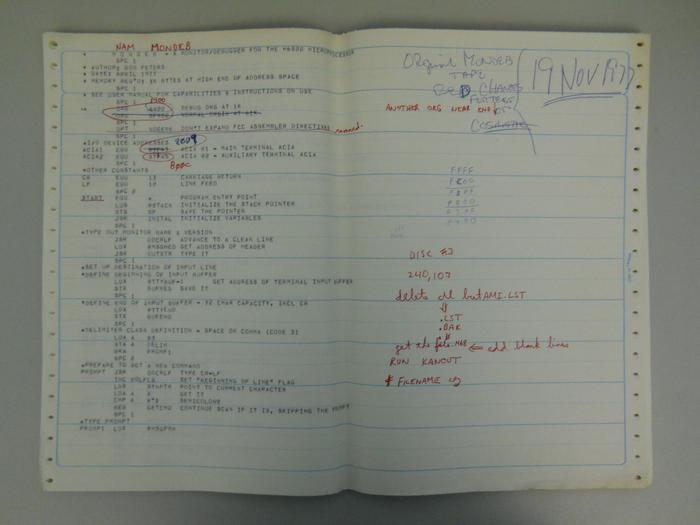 NAM MONDEB
* MONDEB - A MONITOR/DEBUGGER FOR THE M6800 MICROPROCESSOR
SPC 1
* AUTHOR: DON PETERS
* DATE: APRIL 1977
* MEMORY REQ'D: BYTES AT HIGH END OF ADDRESS SPACE
SPC 1
* SEE USER MANUAL FOR CAPABILITIES & INSTRUCTIONS ON USE
SPC 1
1400
ORG DEBUG ORG AT 1K
ORG NORMAL ORGIN AT
SPC 1
OPT NOGENE DON'T EXPAND FCC ASSEMBLER DIRECTIVES
SPC 1
*I/O DEVICE ADDRESSES 8009
ACIA1 EQU ACIA #1 - MAIN TERMINAL ACIA
ACIA2 EQU ACIA #2 - AUXILIARY TERMINAL ACIA
SPC 1
*OTHER CONSTANTS
CR EQU 13 CARRIAGE RETURN
LF EQU 10 LINE FEED
SPC 2
START EQU * PROGRAM ENTRY POINT
LDS #STACK INITIALIZE THE STACK POINTER
STS SP SAVE THE POINTER
JSR INITAL INITIALIZE VARIABLES
SPC 1
*TYPE OUT MONITOR NAME & VERSION
JSR DOCRLF ADVANCE TO A CLEAN LINE
LDX #MSGHED GET ADDRESS OF HEADER
JSR OUTSTR TYPE IT
SPC 1
*SET UP DESTINATION OF INPUT LINE
*DEFINE BEGINNING OF INPUT BUFFER
LDX #TTYBUF-1 GET ADDRESS OF TERMINAL INPUT BUFFER
STX BUFBEG SAVE IT
SPC 1
*DEFINE END OF INPUT BUFFER - 72 CHAR CAPACITY, INCL CR
LDX #TTYEND
STX BUFEND
SPC 1
*DELIMITER CLASS DEFINITION - SPACE OR COMMA (CODE 3)
LDA A #3
STA A DELIM
BRA PROMP1
SPC 2
*PREPARE TO GET A NEW COMMAND
PROMPT JSR DOCRLF TYPE CR-LF
INC BOLFLG SET "BEGINNING OF LINE" FLAG
LDX SYNPTR POINT TO CURRENT CHARACTER
LDA A X GET IT
CMP A #'; SEMICOLON?
BEQ GETCMD CONTINUE SCAN IF IT IS, SKIPPING THE PROMPT
SPC 1
*TYPE PROMPT
PROMP1 LDX #MSGPRM
Original MONDEB
TAPE
19 NOV 1977
ANOTHER ORG NEAR END
DISC #3
240,107
delete all but AMI.LST
.LST
.BAK
get the file.M68 ← add blank lines
RUN KANCUT